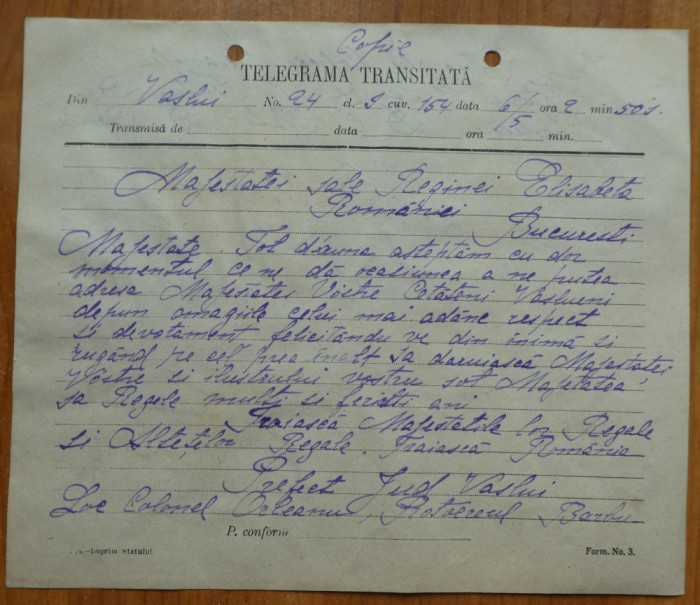 Copie
TELEGRAMA TRANSITATĂ
Din Vaslui No. 24 cl. cuv. 154 data 6/5 ora 2 min. 50 s.
Transmisă de data ora min.
Majestatei sale Reginei Elisabeta
României
Bucuresti
Majestate. Tot d'auna asteptăm cu dor
momentul ce ne dă ocasiunea a ne putea
adresa Majestatei Vóstre Cetateni Vaslueni
depun omagiile celui mai adânc respect
si devotament felicitându ve din inimă si
rugând pe cel prea inalt sa daruiască Majestatei
Vóstre si ilustrului vostru sot Majestatea
sa Regele multi si fericiti ani
Traiască Majestatile lor Regale
si Altețelor Regale. Traiască România
Prefect Jud Vaslui
Loc Colonel Orleanu, Barbu
P. conform
—Imprim Statului
Form. No. 3.